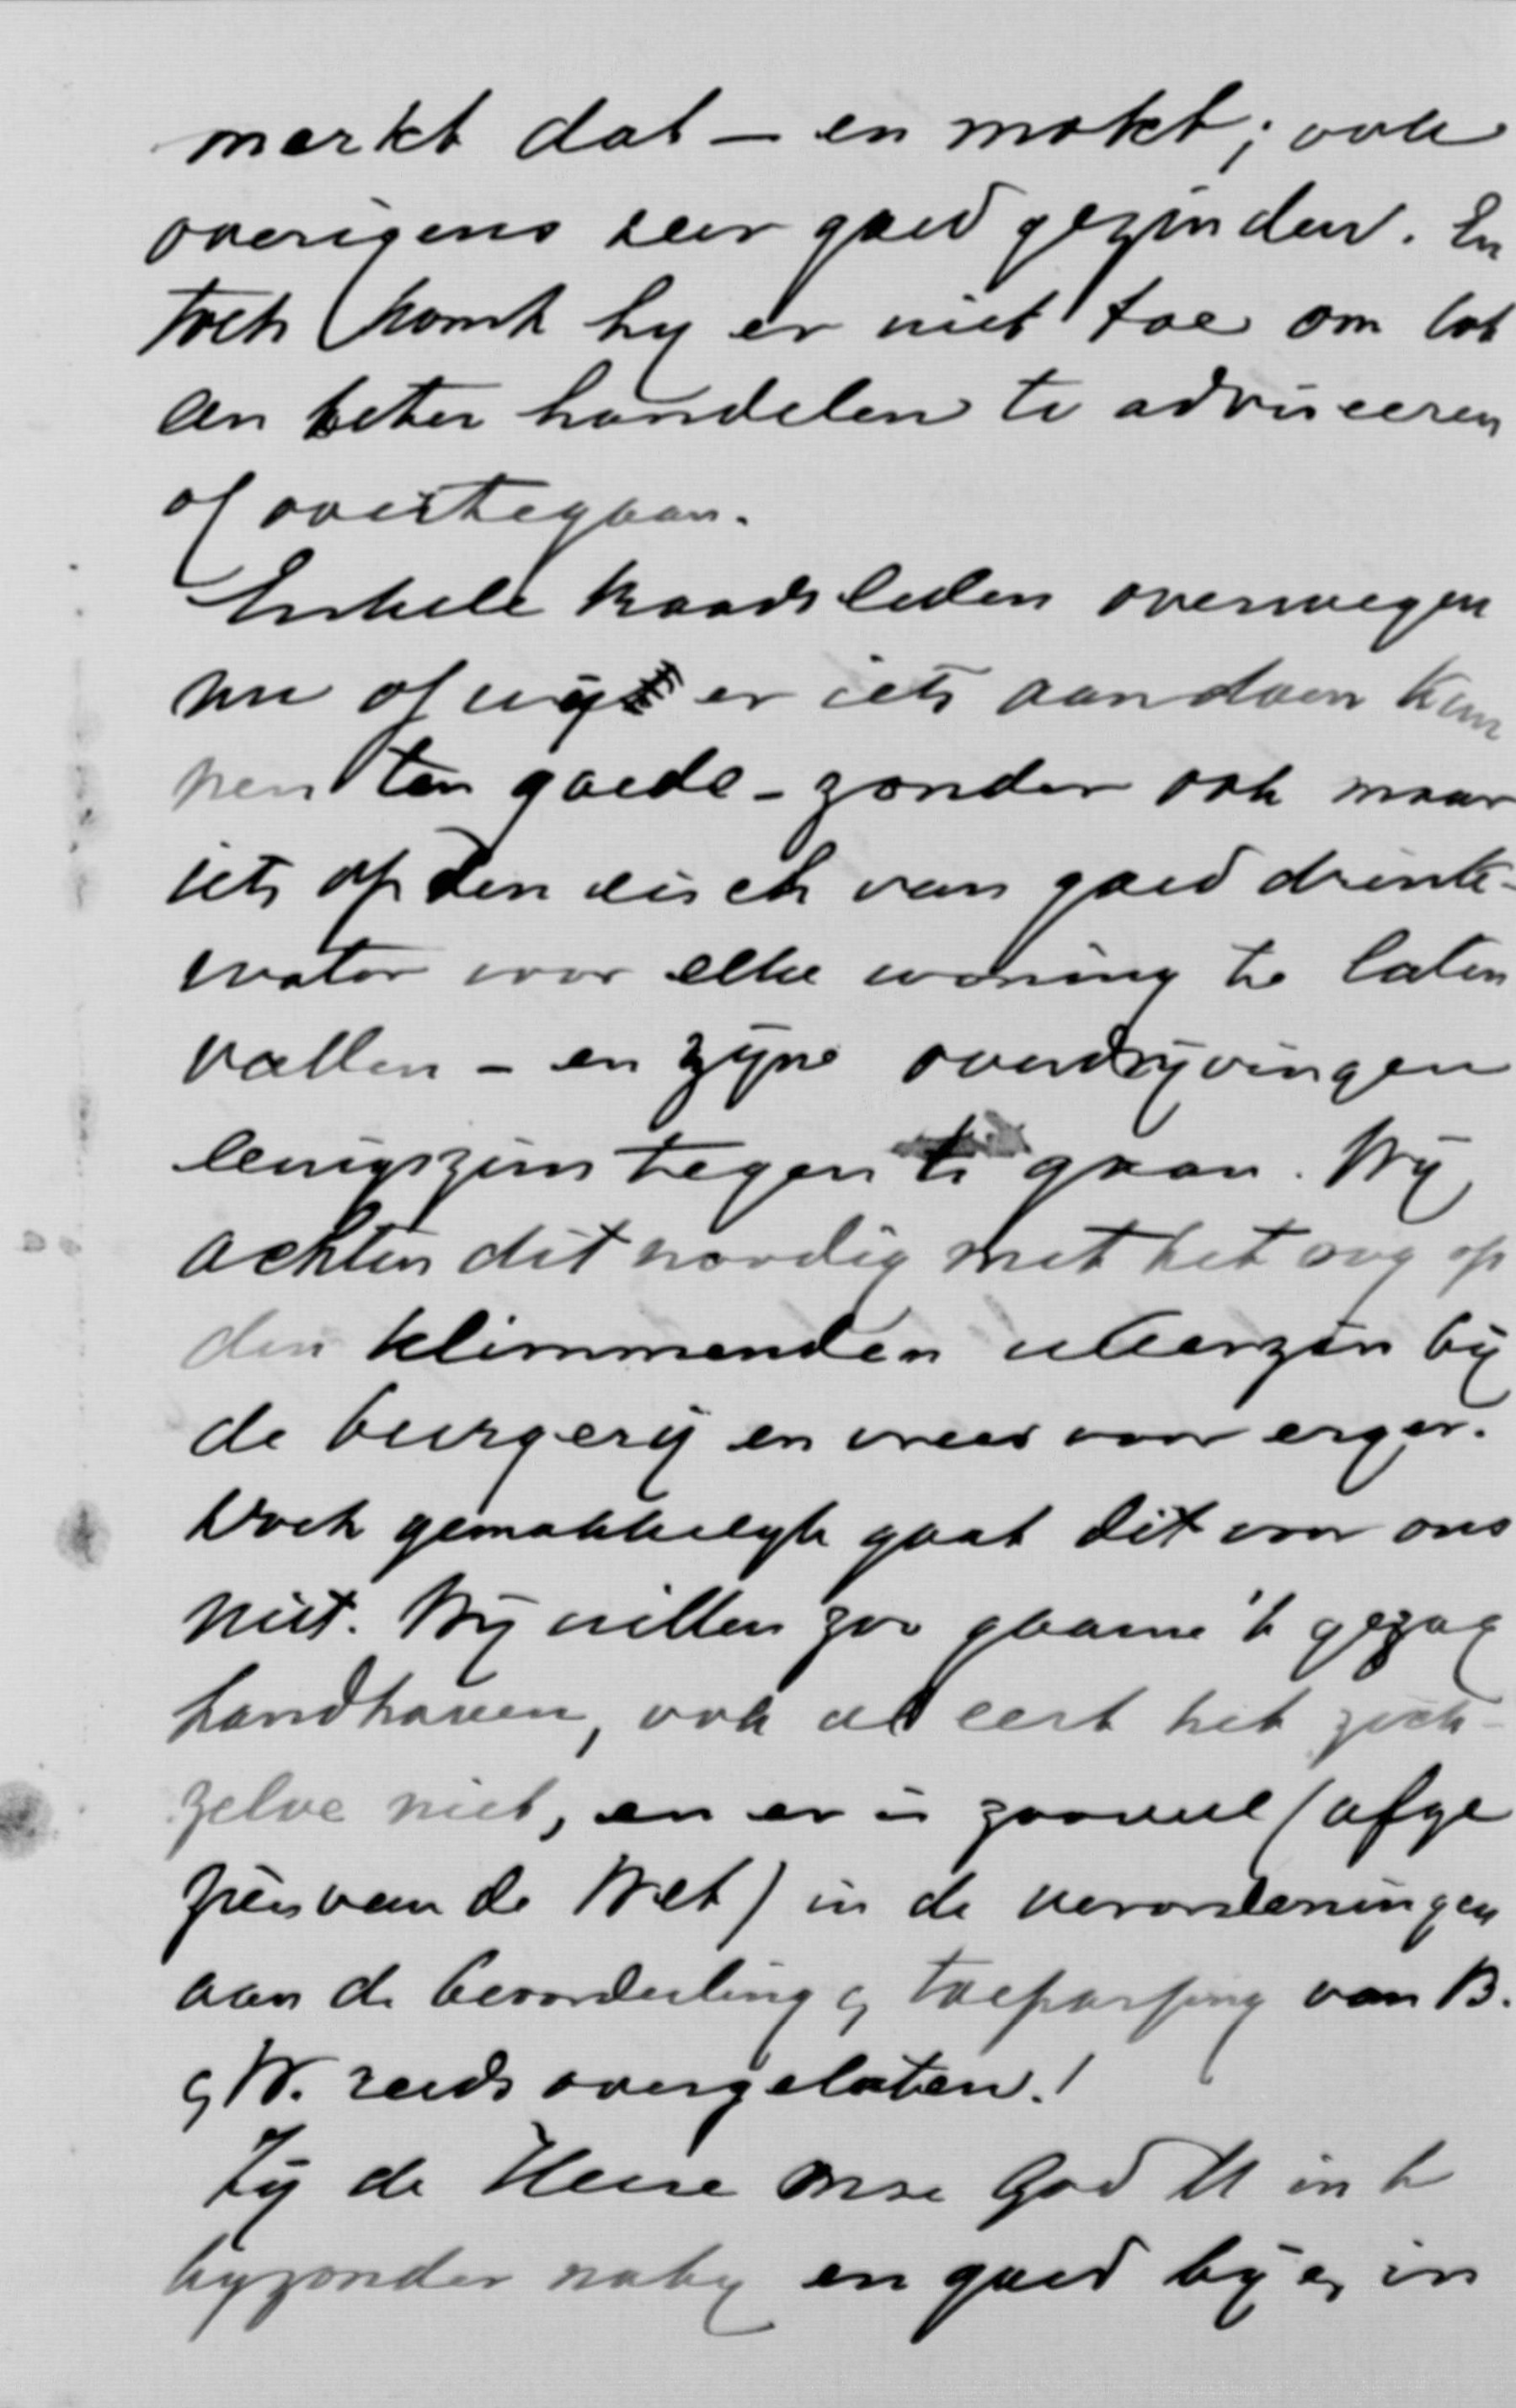 merkt dat – en mokt; ook
overigens zeer goed gezinden. En
toch komt hy er niet toe om tot
een beter handelen te adviseeren
of overtegaan.
Enkele Raadsleden overwegen
nu of wij er iets aan doen kun
nen ten goede – zonder ook maar
iets op den eisch van goed drink-
water voor elke woning te laten
vallen – en zijne overdrijvingen
eenigszins tegen te gaan. Wij
achten dit noodig met het oog op
den klimmenden weerzin bij
de burgerij en vrees voor erger.
Doch gemakkelijk gaat dit voor ons
niet. Wij willen zoo gaarne 't gezag
handhaven, ook al eert het zich-
zelve niet, en er is zooveel (afge
zien van de Wet) in de verordeningen
aan de beoordeeling & toepassing van B.
& W. reeds overgelaten!
Zij de Heere onze God U in 't
byzonder naby en goed bij & in